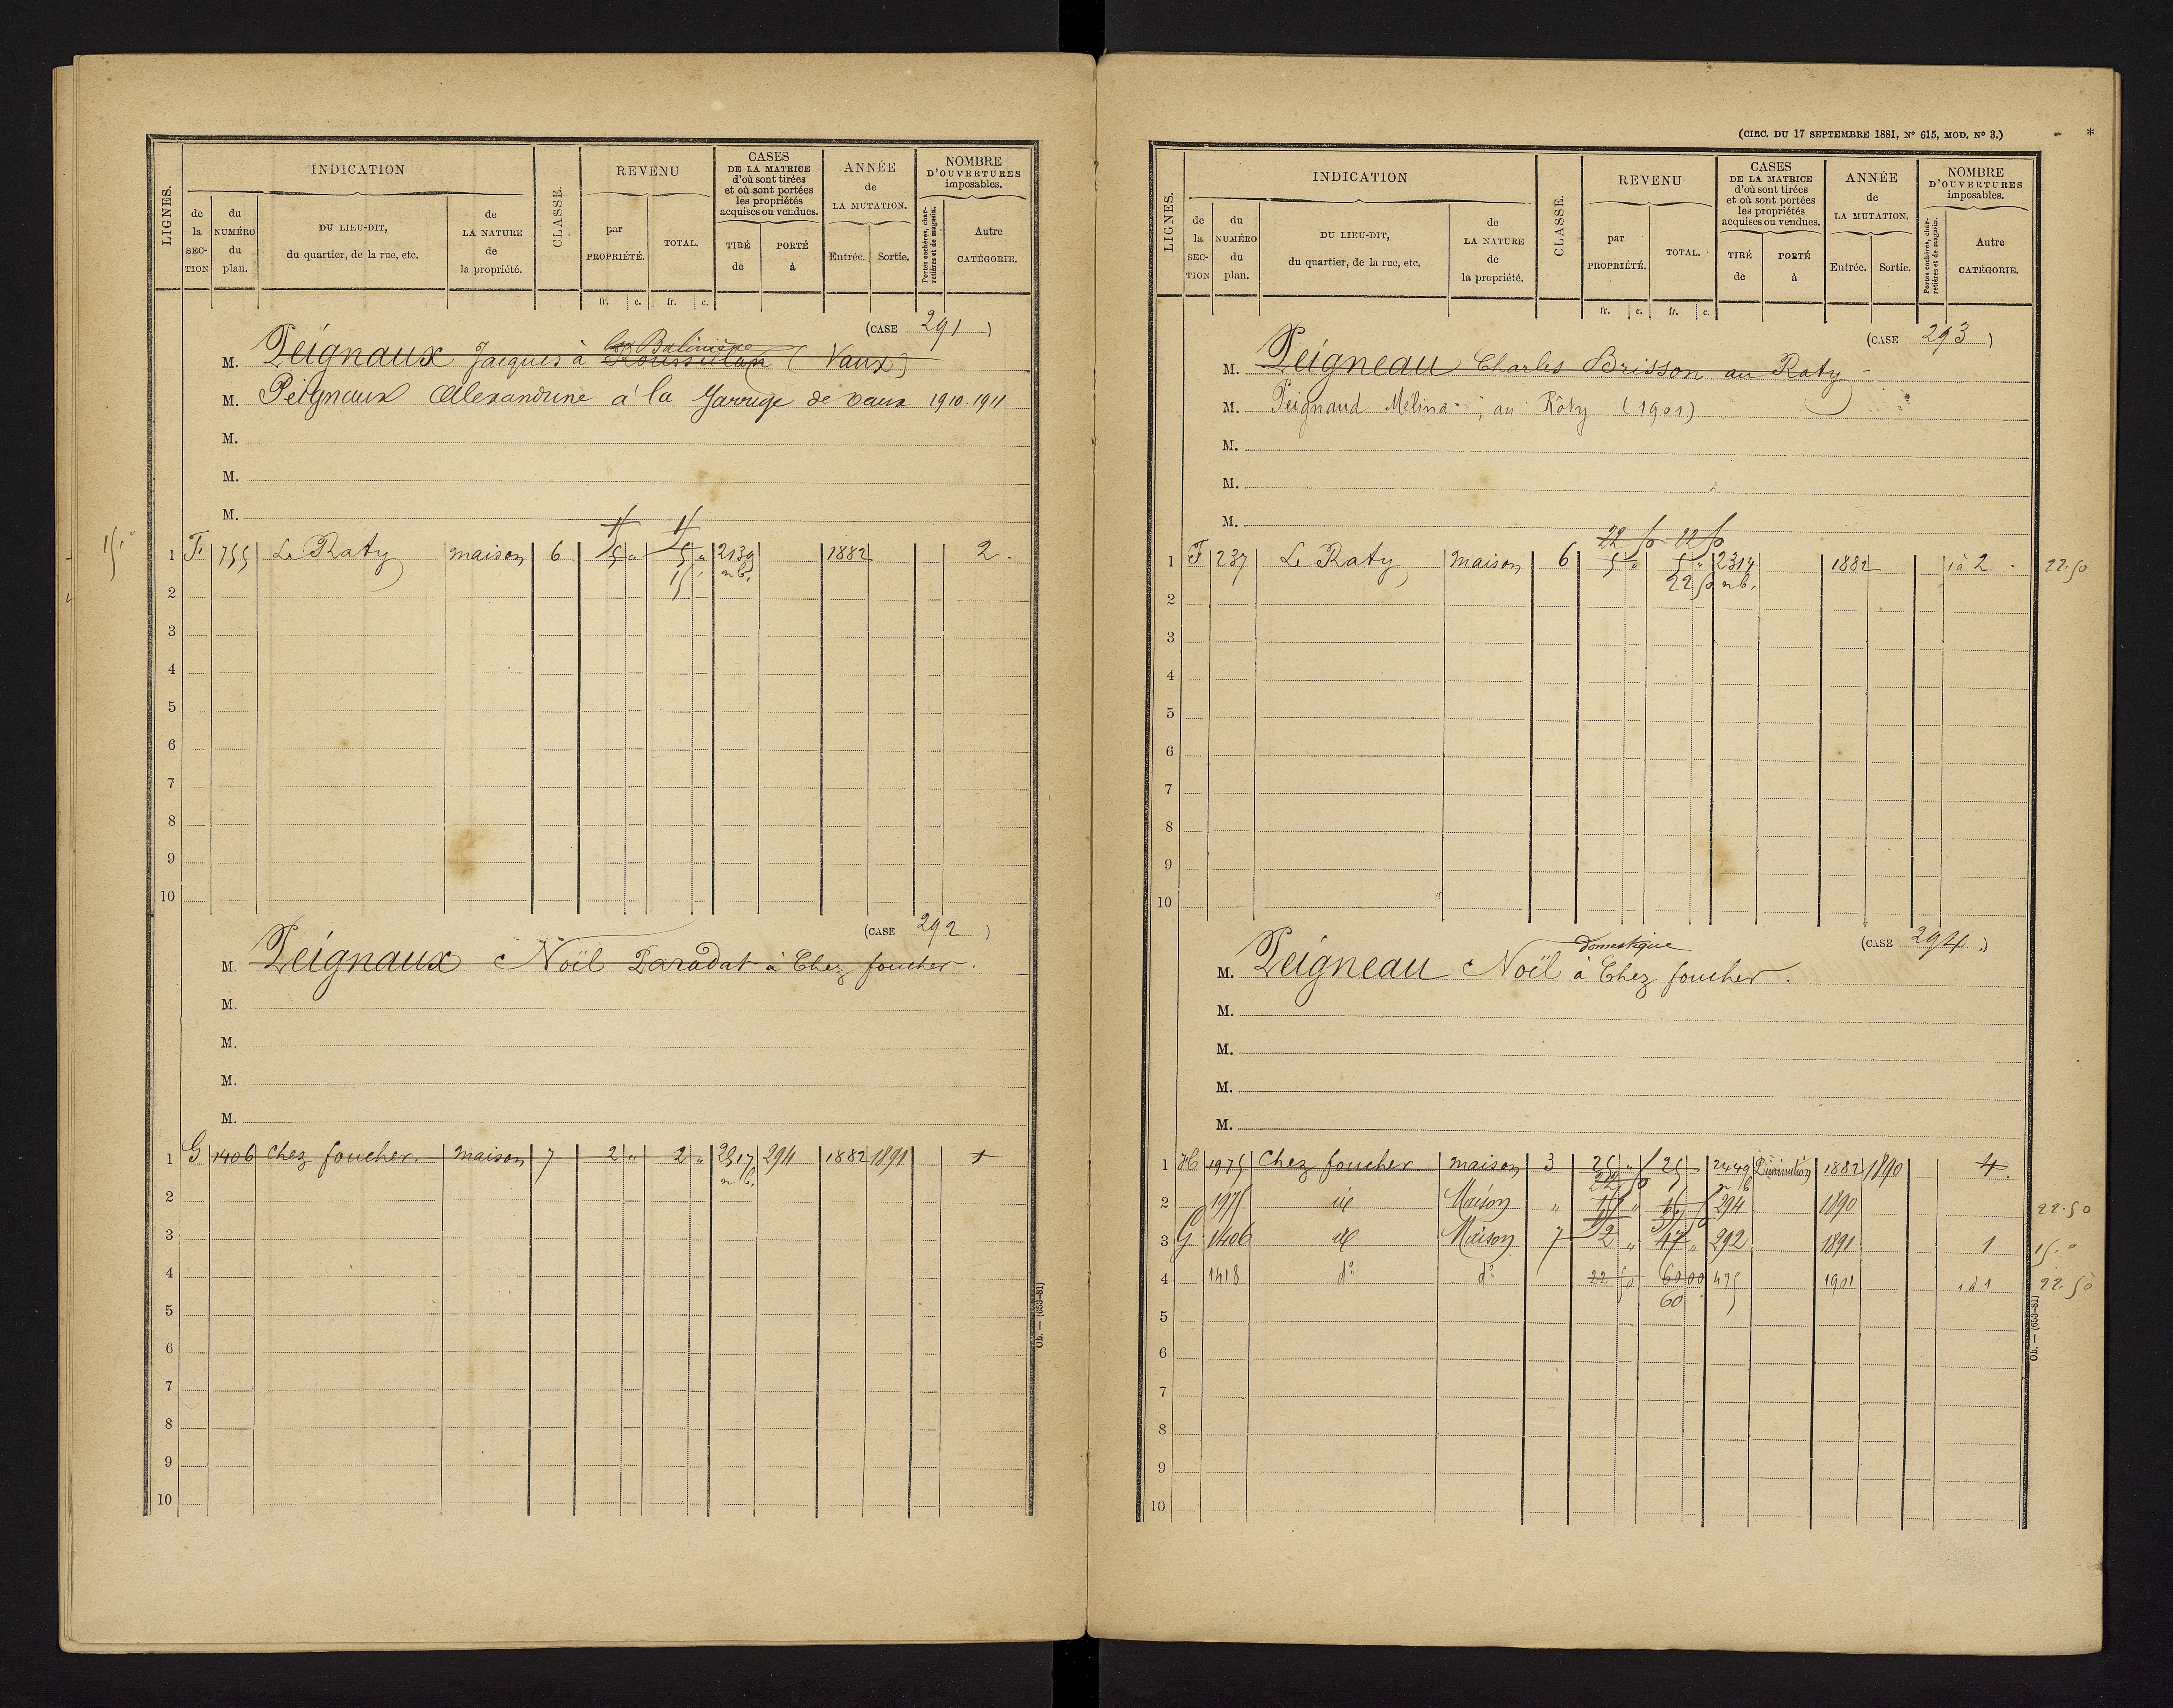 LIGNES.
INDICATION
de la SECTION
du NUMÉRO du plan.
DU LIEU-DIT, du quartier, de la rue, etc.
de LA NATURE de la propriété.
CLASSE.
REVENU
par PROPRIÉTÉ.
TOTAL.
fr. c. fr. c.
CASES DE LA MATRICE d'où sont tirées et où sont portées les propriétés acquises ou vendues.
TIRÉ de
PORTÉ à
ANNÉE de LA MUTATION.
Entrée. Sortie.
NOMBRE D'OUVERTURES imposables.
Portes cochères, charretières et de magasin.
Autre CATÉGORIE.
(CASE 291)
M. Peignaux Jacques à (Vaux)
M. Peignaux Alexandrine à la Garruge de vaux 1910-1911
M.
M.
M.
1 F 755 Le Raty maison 6 5 " 5 " 2139 1882 2.
15 " nb.
2
3
4
5
6
7
8
9
10
(CASE 292)
M. Peignaux Noël Paradat à Chez foucher.
M.
M.
M.
M.
1 G 1406 Chez foucher. maison 7 2 " 2 " 2317 294 1882 1891 1
nb.
2
3
4
5
6
7
8
9
10
Ob. — (653-81)
(CIRC. DU 17 SEPTEMBRE 1881, N° 615, MOD. N° 3.) *
LIGNES.
INDICATION
de la SECTION
du NUMÉRO du plan.
DU LIEU-DIT, du quartier, de la rue, etc.
de LA NATURE de la propriété.
CLASSE.
REVENU
par PROPRIÉTÉ.
TOTAL.
fr. c. fr. c.
CASES DE LA MATRICE d'où sont tirées et où sont portées les propriétés acquises ou vendues.
TIRÉ de
PORTÉ à
ANNÉE de LA MUTATION.
Entrée. Sortie.
NOMBRE D'OUVERTURES imposables.
Portes cochères, charretières et de magasin.
Autre CATÉGORIE.
(CASE 293)
M. Peigneau Charles Brisson au Raty
M. Peignaud Mélina, au Rôty (1901)
M.
M.
M.
22 50 22 50
1 F 237 Le Raty maison 6 5 " 5 " 2314 1882 1 à 2. 22.50
22 50 nb.
2
3
4
5
6
7
8
9
10
(CASE 294)
domestique
M. Peigneau Noël à Chez foucher.
M.
M.
M.
M.
1 H 1975 Chez foucher maison 3 25 " 25 2449 Diminution 1882 1890 4.
22 50 nb
2 1975 id Maison " 15 " 294 1890 22.50
3 G 1406 id Maison 7 2 " 17 " 292 1891 1 15."
4 1418 d° d° 22 50 60 00 475 1901 1 à 1 22.50
60
5
6
7
8
9
10
Ob. — (653-81)